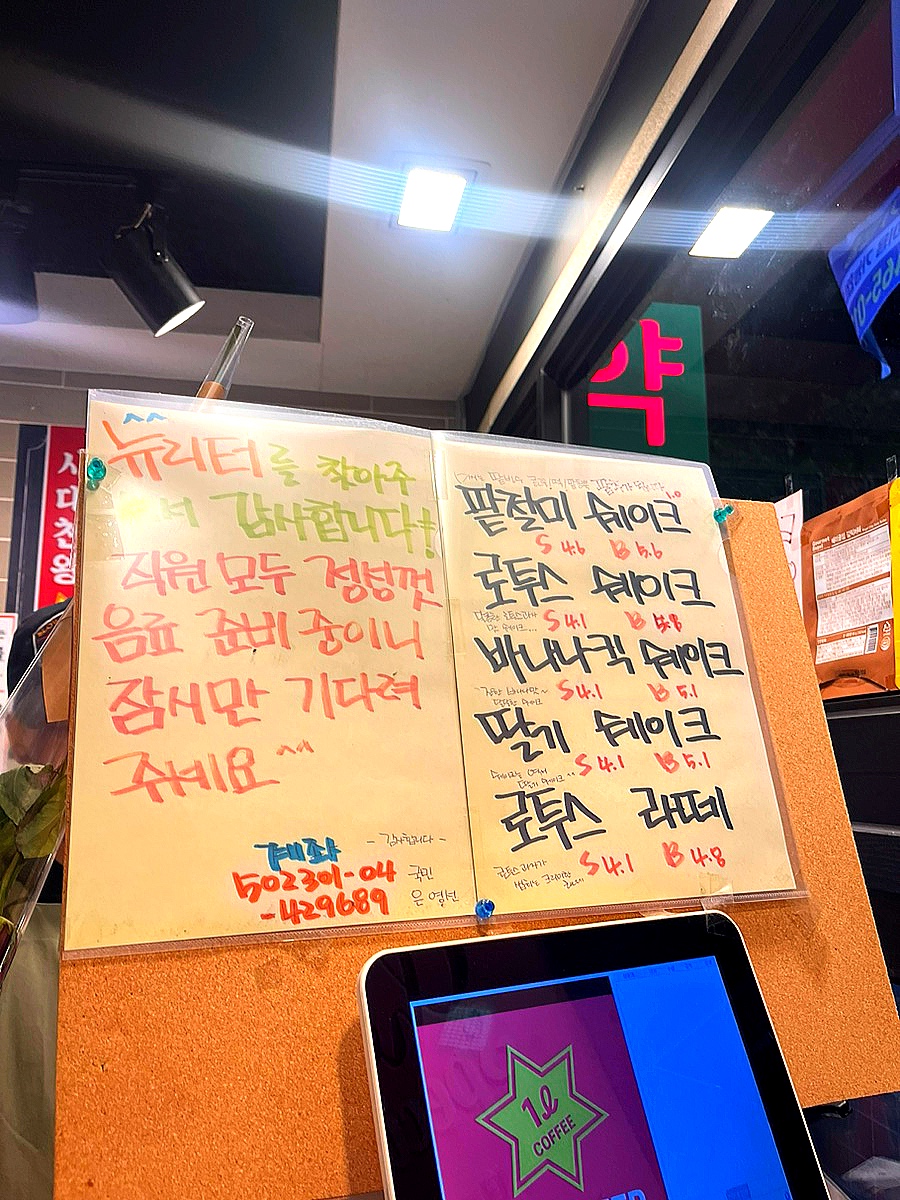 ^^
뉴리터를 찾아주
셔서 감사합니다!
직원 모두 정성껏
음료 준비 중이니
잠시만 기다려
주세요^^
- 감사합니다 -
계좌
502301-04
-429689
국민
은영선
팥절미 쉐이크
S 4.6 B 5.6
로투스 쉐이크
S 4.1 B 5.8
바나나킥 쉐이크
S 4.1 B 5.1
딸기 쉐이크
S 4.1 B 5.1
로투스 라떼
S 4.1 B 4.8
약
사
대
천
왕
1ℓ
COFFEE